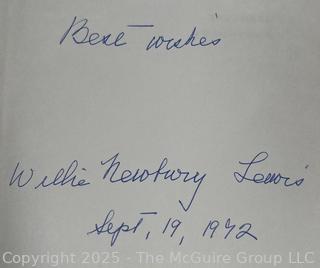 Best wishes
Willie Newbury Lewis
Sept, 19, 1972
Copyright 2025 - The McGuire Group LLC